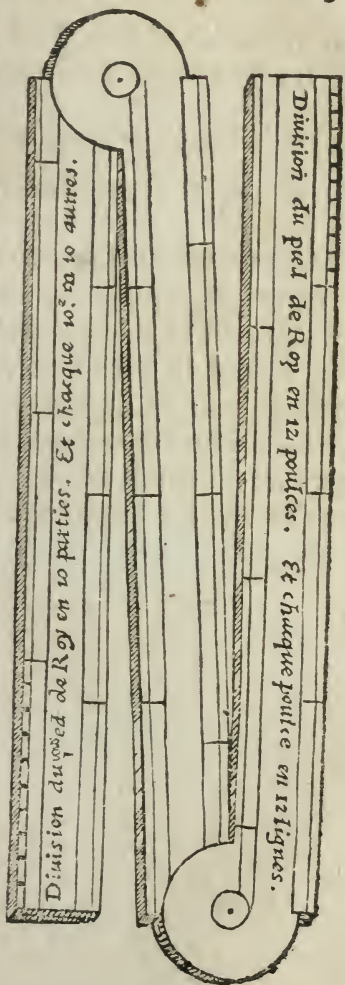 Diuision du pied de Roy en 10 parties. Et chacque 10.e en 10 autres.
Diuision du pied de Roy en 12 poulces. Et chacque poulce en 12 lignes.